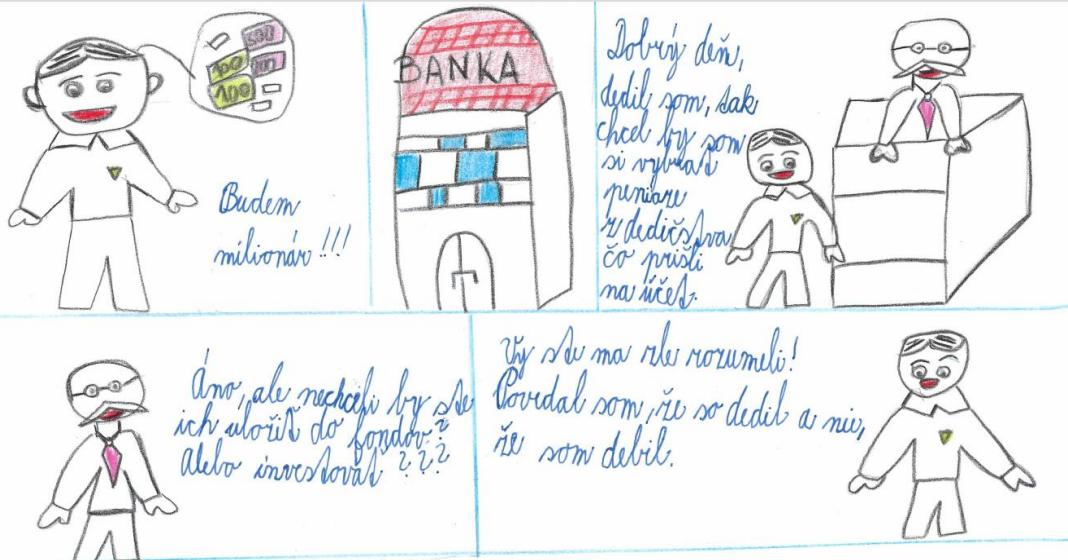 500
100
200
100
Budem
milionár!!!
BANKA
Dobrý deň,
dedil som, tak
chcel by som
si vybrať
peniaze
z dedičstva
čo prišli
na účet.
Áno, ale nechceli by ste
ich uložiť do fondov?
Alebo investovať???
Vy ste ma zle rozumeli!
Povedal som, že so dedil a nie,
že som debil.